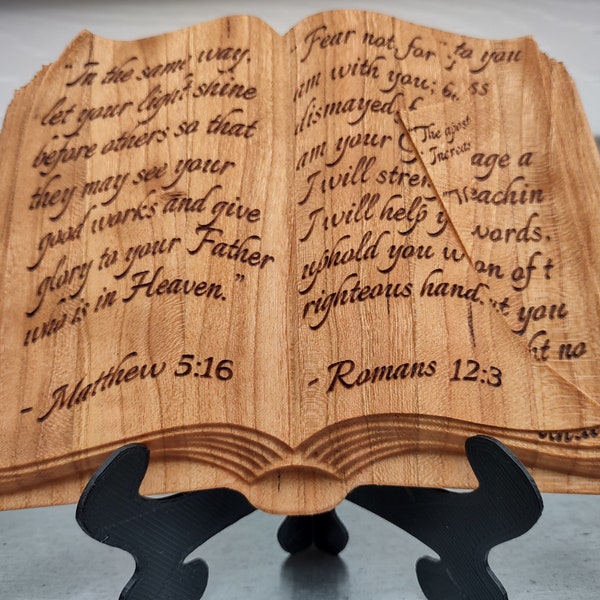 "In the same way,
let your light shine
before others so that
they may see your
good works and give
glory to your Father
who is in Heaven."
- Matthew 5:16
- Fear not, for
am with you;
dismayed,
am your
I will stren
I will help y
uphold you w
righteous hand.
- Romans 12:3
to you
ss
"The
age a
"Teachin
words,
on of t
t you
ht no